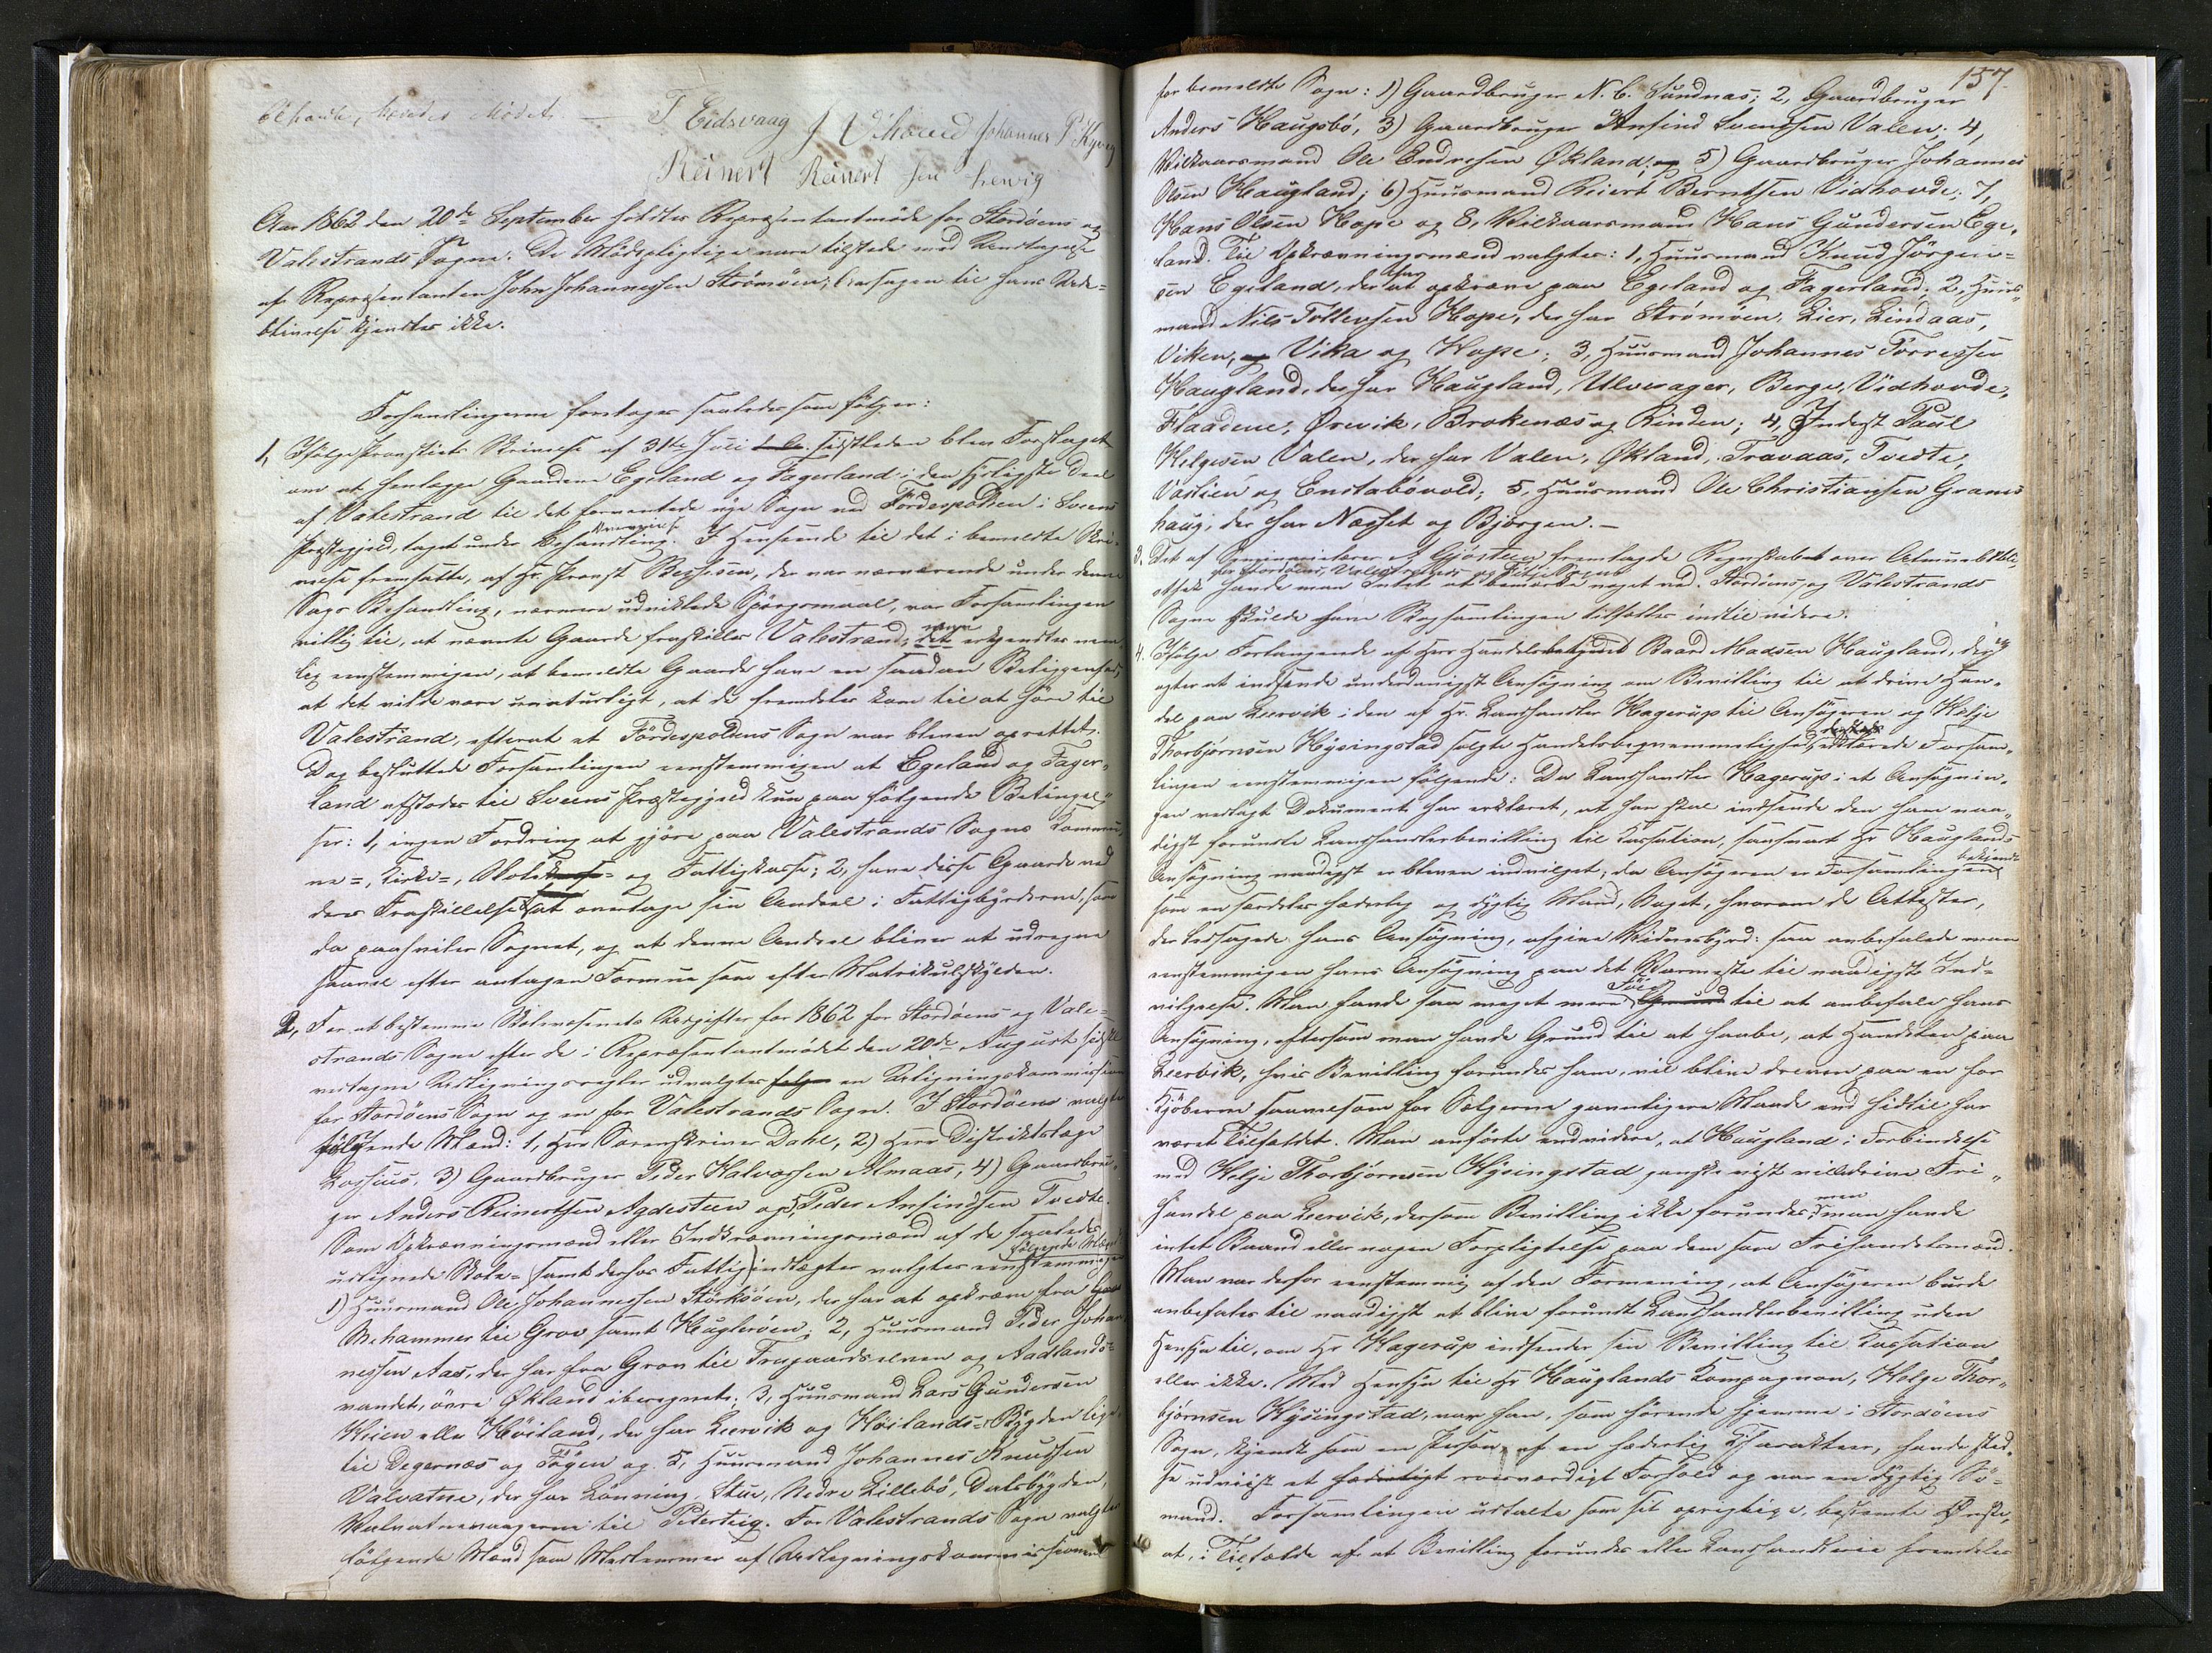 hævedes Mødet. — T. Eidsvaag Johannes P. Kyvig
Reinert Reinert sen hevig
Aar 1862 den 20de September holdtes Repræsentantmøde for Stordøens og
Valestrands Sogne. De Mødepligtige vare tilstede med Undtagelse
af Repræsentanten John Johannessen Strømøen; Aarsagen til hans Ude-
blivelse kjendtes ikke.
Forhandlingerne foretoges saaledes som følger:
1, Ifølge Provstiets Skrivelse af 31te Juli sidstleden blev Forslaget
om at henlægge Gaardene Egeland og Fagerland i den sydligste Deel
af Valestrand til det forventede nye Sogn ved Fördespollen i Sveens
Præstegjeld, taget under Behandling. I Henseende til det i bemeldte Skri-
velse fremsatte, af Hr. Provst Bessesen, der var nærværende under denne
Sags Behandling, nærmere udviklede Spørgsmaal, var Forsamlingen
villig til, at nævnte Gaarde fraskilles Valestrand; det erkjendtes nem-
lig eenstemmigen, at bemeldte Gaarde have en saadan Beliggenhed,
at det vilde være unaturligt, at de fremdeles kom til at høre til
Valestrand, efterat et Fördespollens Sogn var bleven oprettet.
Dog besluttede Forsamlingen eenstemmigen at Egeland og Fager-
land afstodes til Sveens Præstegjeld kun paa følgende Betingel-
ser: 1, ingen Fordring at gjøre paa Valestrands Sogns Kommu-
ne-, Kirke-, Skole- og Fattigkasse; 2, have disse Gaarde ved
deres Fraskillelse at overtage sin Andeel i Fattigbyrderne, som
da paahviler Sognet, og at denne Andeel bliver at udregne
saavel efter antagen Formue som efter Matrikulskylden.
2, For at bestemme Skolevæsenets Udgifter for 1862 for Stordøens og Vale-
strands Sogne efter de i Repræsentantmødet den 20de August sidstl.
vedtagne Udligningsregler udvalgtes en Udligningskommission
for Stordøens Sogn og en for Valestrands Sogn. I Stordøens valgtes
følgende Mænd: 1, Herr Sorenskriver Dahl, 2) Herr Distriktslæge
Lossius, 3) Gaardbruger Peder Halvorsen Almaas, 4) Gaardbru-
ger Anders Reinertsen Agdesteen og 5, Peder Ansindsen Tvedte.
Som Opkrævningsmænd eller Indkrævningsmænd af de saaledes
udlignede Skole- samt derhos Fattigindtægter valgtes eenstemmigen følgende Mænd
1) Huusmand Ole Johannessen Storksøen, der har at opkræve fra
Mehammer til Grov samt Huglerøen; 2, Huusmand Peder Johan-
nessen Aas, der har fra Grov til Frugaardselven og Aadlands-
vandet, övre Økland iberegnet; 3, Huusmand Lars Gundersen
Heien eller Høiland, der har Leervik og Høilands-Bygden lige
til Degernæs og Fögen og 5, Huusmand Johannes Knudsen
Valvatne, der har Lønning, Stue, Nedre Lillebö, Dalsbygden,
Valvatnevaagerne til Petersteig. For Valestrands Sogn valgtes
følgende Mænd som Medlemmer af Udligningskommissionen
157.
for bemeldte Sogn: 1) Gaardbruger N. C. Sundnas; 2, Gaardbruger
Anders Haugsbö, 3) Gaardbruger Ansind Svendsen Valen; 4,
Vilkaarsmand Ole Endresen Økland; og 5) Gaardbruger Johannes
Olsen Haugland; 6) Huusmand Reiert Berntsen Vidhovde; 7,
Hans Olsen Hope og 8, Vilkaarsmand Hans Gundersen Ege-
land. Til Opkrævningsmænd valgtes: 1, Huusmand Knud Jörgen-
sen Egeland, der har at opkræve paa Egeland og Fagerland; 2, Huus-
mand Nils Tollevsen Hope, der har Strømøen, Lier, Lindaas,
Viken, og Vika og Hope; 3, Huusmand Johannes Torresen
Haugland, der har Haugland, Ulverager, Berge, Vidhovde,
Flaadene, Ørevik, Brokenæs og Rinden; 4, Inderst Paul
Helgesen Valen, der har Valen, Økland, Travaas, Tvedte,
Vaslien og Enstabövold; 5, Huusmand Ole Christiansen Grans-
haug, der har Næsset og Bjørgen. —
3. Det af A. Gjøsteen fremlagte Regnskab over Almuebibli-
for Stordøens, Valestrands og Fitje Sogne
othek havde man Intet at bemærke noget ved. Stordøens og Valestrands
Sogne skulde have Bogsamlingen tilfælles indtil videre.
4. Ifølge Forlangende af Herr Handelsbetjent Baard Madsen Haugland, der
agter at indsende underdanigst Ansøgning om Bevilling til at drive Han-
del paa Leervik i den af Hr. Landhandler Hagerup til Ansøgeren og Helje
Thorbjørnsen Hysingstad solgte Handelsbeqvemmelighed, erklærede Forsam-
lingen eenstemmigen følgende: Da Landhandler Hagerup i et Ansøgnin-
gen vedlagt Dokument har erklæret, at han skal indsende den ham naa-
digst forundte Landhandlerbevilling til Kassation, saasnart Hr Hauglands
Ansøgning naadigst er bleven indvilget; da Ansøgeren er Forsamlingen bekjendt
som en særdeles hæderlig og dygtig Mand, Noget, hvorom de Attester,
der ledsagede hans Ansøgning, afgive Vidnesbyrd: saa anbefalede man
eenstemmigen hans Ansøgning paa det Varmeste til naadigst Ind-
vilgelse. Man fandt saa meget mere Föie til at anbefale hans
Ansøgning, eftersom man havde Grund til at haabe, at Handelen paa
Leervik, hvis Bevilling forundes ham, vil blive dreven paa en for
Kjøberne saavelsom for Sælgerne gunstigere Maade end hidtil har
været Tilfældet. Man anførte endvidere, at Haugland i Forbindelse
med Helje Thorbjørnsen Hysingstad ganske vist vilde drive Fri-
handel paa Leervik, dersom Bevilling ikke forundes; men man havde
intet Baand eller nogen Forpligtelse paa dem som Frihandelsmænd.
Man var derfor eenstemmig af den Formening, at Ansøgeren burde
anbefales til naadigst at blive forundt Landhandlerbevilling uden
Hensyn til, om Hr Hagerup indsender sin Bevilling til Kassation
eller ikke. Med Hensyn til Hr Hauglands Kompagnon, Helge Thor-
bjørnsen Hysingstad, var han, som hørende hjemme i Stordøens
Sogn, kjendt som en Person af en hæderlig Charakteer, havde sted-
se udviist et roesværdigt Forhold og var en dygtig Sö-
mand. Forsamlingen udtalte som sit oprigtige, bestemte Ønske,
at, i Tilfælde af at Bevilling forundes eller Landhandlerie fremdeles